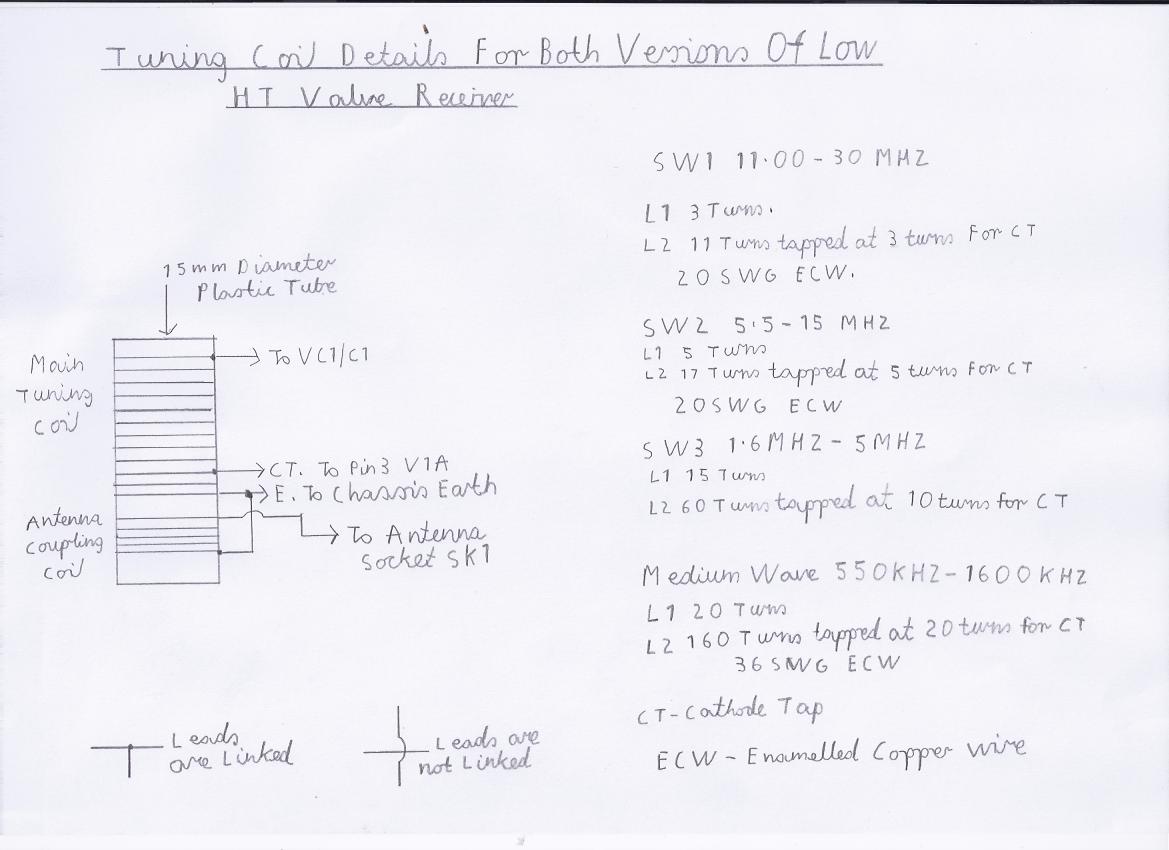 Tuning Coil Details For Both Versions Of Low
HT Valve Receiver
15mm Diameter
Plastic Tube
Main
Tuning
Coil
To VC1/C1
CT. To Pin 3 V1A
E. To Chassis Earth
Antenna
Coupling
Coil
To Antenna
Socket SK1
Leads
are Linked
Leads are
not Linked
SW1 11.00 - 30 MHZ
L1 3 Turns.
L2 11 Turns tapped at 3 turns For CT
20 SWG ECW.
SW2 5.5 - 15 MHZ
L1 5 Turns
L2 17 Turns tapped at 5 turns For CT
20SWG ECW
SW3 1.6MHZ - 5MHZ
L1 15 Turns
L2 60 Turns tapped at 10 turns for CT
Medium Wave 550KHZ - 1600KHZ
L1 20 Turns
L2 160 Turns tapped at 20 turns for CT
36 SWG ECW
CT - Cathode Tap
ECW - Enamelled Copper wire